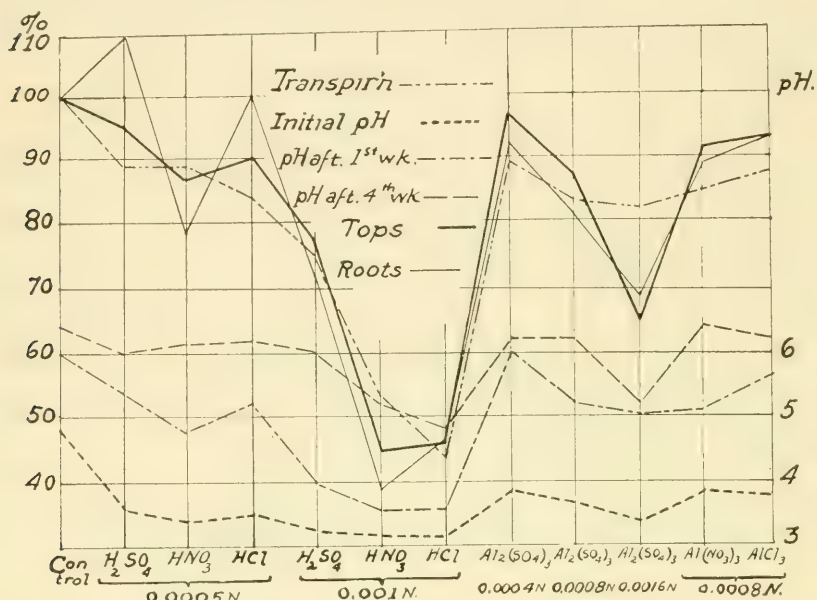 %
110
100
90
80
70
60
50
40
pH.
6
5
4
3
Transpir'n
Initial pH
pH aft. 1st wk.
pH aft. 4th wk
Tops
Roots
Con
trol
H2SO4
HNO3
HCl
H2SO4
HNO3
HCl
Al2(SO4)3
Al2(SO4)3
Al2(SO4)3
Al(NO3)3
AlCl3
0.0005N.
0.001N.
0.0004N
0.0008N
0.0016N
0.0008N.